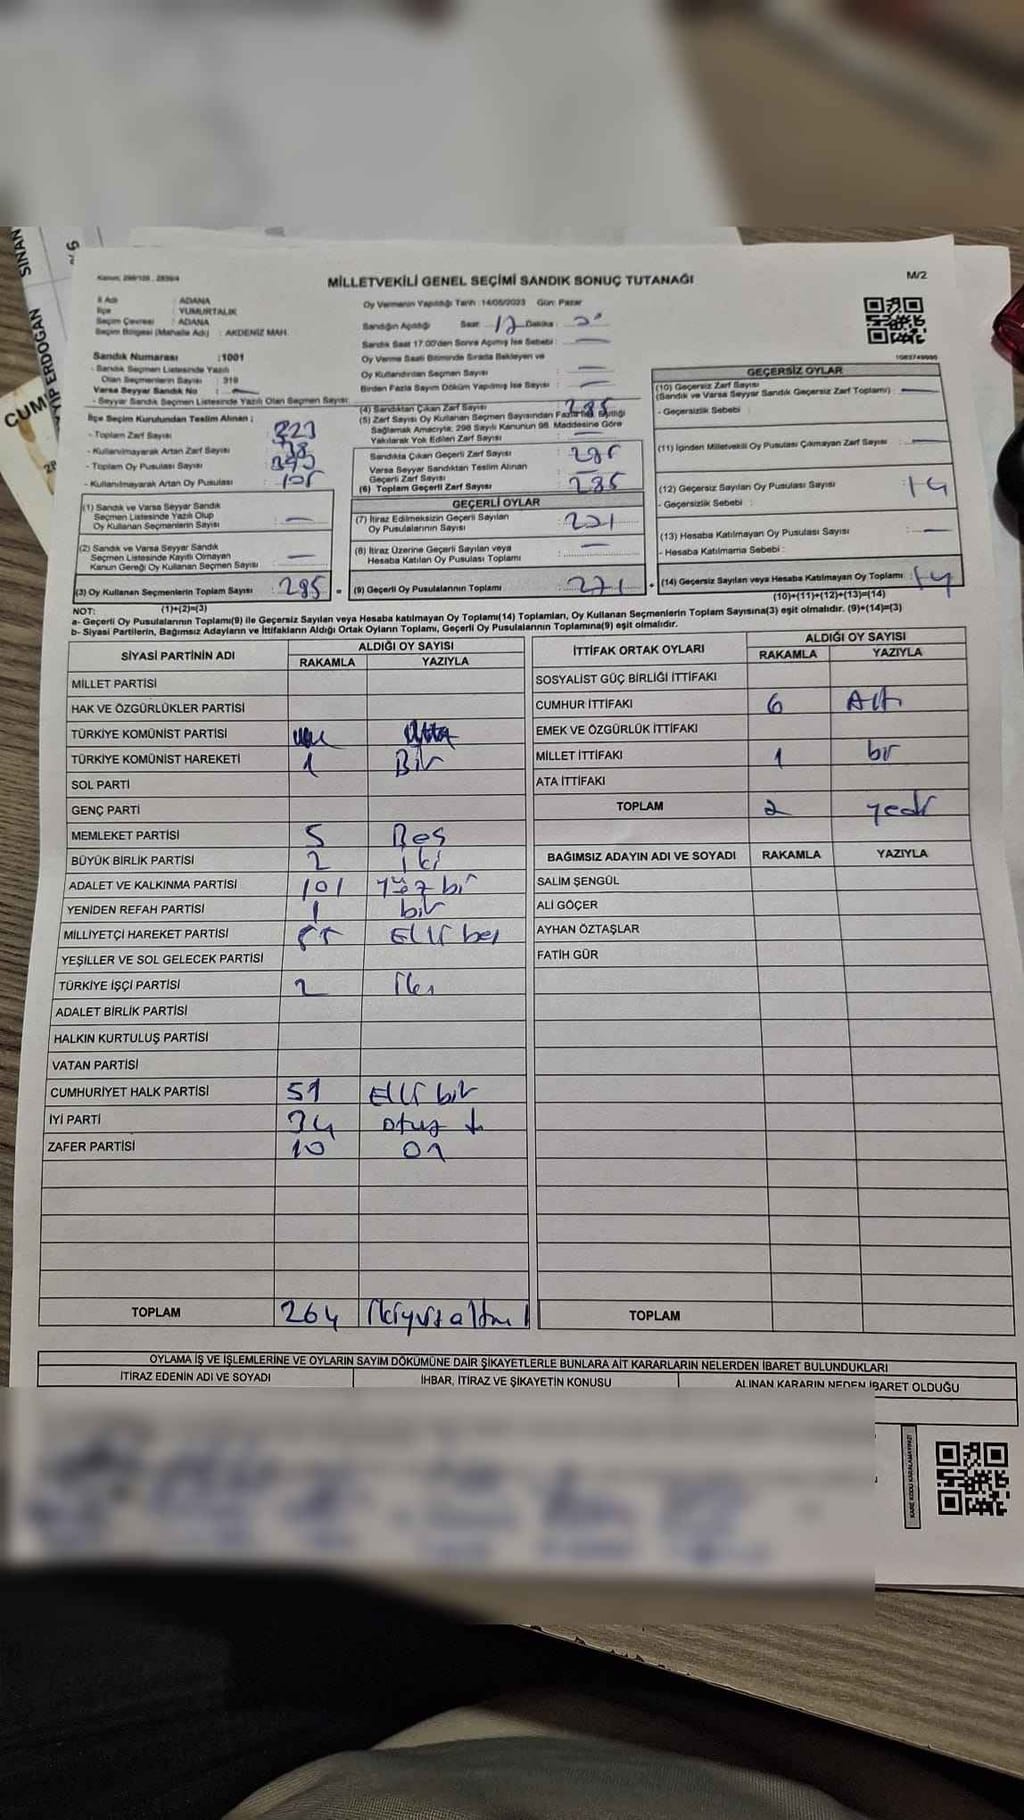 SİNAN
CUM
YİP ERDOĞAN
Kanun: 298/105 , 2839/4
MİLLETVEKİLİ GENEL SEÇİMİ SANDIK SONUÇ TUTANAĞI
M/2
İl Adı : ADANA
İlçe : YUMURTALIK
Seçim Çevresi : ADANA
Seçim Bölgesi (Mahalle Adı) : AKDENİZ MAH.
Sandık Numarası :1001
- Sandık Seçmen Listesinde Yazılı
Olan Seçmenlerin Sayısı : 319
Varsa Seyyar Sandık No : —
- Seyyar Sandık Seçmen Listesinde Yazılı Olan Seçmen Sayısı:
Oy Vermenin Yapıldığı Tarih :14/05/2023 Gün: Pazar
Sandığın Açıldığı Saat: 17 Dakika :
Sandık Saat 17.00'den Sonra Açılmış İse Sebebi : —
Oy Verme Saati Bitiminde Sırada Bekleyen ve
Oy Kullandırılan Seçmen Sayısı : —
Birden Fazla Sayım Döküm Yapılmış İse Sayısı : —
İlçe Seçim Kurulundan Teslim Alınan :
- Toplam Zarf Sayısı : 323
- Kullanılmayarak Artan Zarf Sayısı : 38
- Toplam Oy Pusulası Sayısı :
- Kullanılmayarak Artan Oy Pusulası : 105
(1) Sandık ve Varsa Seyyar Sandık
Seçmen Listesinde Yazılı Olup
Oy Kullanan Seçmenlerin Sayısı : —
(2) Sandık ve Varsa Seyyar Sandık
Seçmen Listesinde Kayıtlı Olmayan
Kanun Gereği Oy Kullanan Seçmen Sayısı : —
(3) Oy Kullanan Seçmenlerin Toplam Sayısı : 285 =
(1)+(2)=(3)
(4) Sandıktan Çıkan Zarf Sayısı : 285
(5) Zarf Sayısı Oy Kullanan Seçmen Sayısından Fazla İse Eşitliği
Sağlamak Amacıyla; 298 Sayılı Kanunun 98. Maddesine Göre
Yakılarak Yok Edilen Zarf Sayısı : —
Sandıkta Çıkan Geçerli Zarf Sayısı : 285
Varsa Seyyar Sandıktan Teslim Alınan
Geçerli Zarf Sayısı : —
(6) Toplam Geçerli Zarf Sayısı : 285
GEÇERLİ OYLAR
(7) İtiraz Edilmeksizin Geçerli Sayılan
Oy Pusulalarının Sayısı : 271
(8) İtiraz Üzerine Geçerli Sayılan veya
Hesaba Katılan Oy Pusulası Toplamı : —
(9) Geçerli Oy Pusulalarının Toplamı : 271 +
1083749996
GEÇERSİZ OYLAR
(10) Geçersiz Zarf Sayısı
(Sandık ve Varsa Seyyar Sandık Geçersiz Zarf Toplamı) : —
- Geçersizlik Sebebi :
(11) İçinden Milletvekili Oy Pusulası Çıkmayan Zarf Sayısı : —
(12) Geçersiz Sayılan Oy Pusulası Sayısı : 14
- Geçersizlik Sebebi :
(13) Hesaba Katılmayan Oy Pusulası Sayısı : —
- Hesaba Katılmama Sebebi :
(14) Geçersiz Sayılan veya Hesaba Katılmayan Oy Toplamı : 14
(10)+(11)+(12)+(13)=(14)
NOT:
a- Geçerli Oy Pusulalarının Toplamı(9) ile Geçersiz Sayılan veya Hesaba katılmayan Oy Toplamı(14) Toplamları, Oy Kullanan Seçmenlerin Toplam Sayısına(3) eşit olmalıdır. (9)+(14)=(3)
b- Siyasi Partilerin, Bağımsız Adayların ve İttifakların Aldığı Ortak Oyların Toplamı, Geçerli Oy Pusulalarının Toplamına(9) eşit olmalıdır.
SİYASİ PARTİNİN ADI ALDIĞI OY SAYISI
RAKAMLA YAZIYLA
MİLLET PARTİSİ
HAK VE ÖZGÜRLÜKLER PARTİSİ
TÜRKİYE KOMÜNİST PARTİSİ
TÜRKİYE KOMÜNİST HAREKETİ 1 Bir
SOL PARTİ
GENÇ PARTİ
MEMLEKET PARTİSİ 5 Beş
BÜYÜK BİRLİK PARTİSİ 2 iki
ADALET VE KALKINMA PARTİSİ 101 Yüz bir
YENİDEN REFAH PARTİSİ 1 bir
MİLLİYETÇİ HAREKET PARTİSİ 55 Elli beş
YEŞİLLER VE SOL GELECEK PARTİSİ
TÜRKİYE İŞÇİ PARTİSİ 2 İki
ADALET BİRLİK PARTİSİ
HALKIN KURTULUŞ PARTİSİ
VATAN PARTİSİ
CUMHURİYET HALK PARTİSİ 51 Elli bir
İYİ PARTİ 34 otuz
ZAFER PARTİSİ 10 On
TOPLAM 264 ikiyüz altm
İTTİFAK ORTAK OYLARI ALDIĞI OY SAYISI
RAKAMLA YAZIYLA
SOSYALİST GÜÇ BİRLİĞİ İTTİFAKI
CUMHUR İTTİFAKI 6 Altı
EMEK VE ÖZGÜRLÜK İTTİFAKI
MİLLET İTTİFAKI 1 bir
ATA İTTİFAKI
TOPLAM yedi
BAĞIMSIZ ADAYIN ADI VE SOYADI RAKAMLA YAZIYLA
SALİM ŞENGÜL
ALİ GÖÇER
AYHAN ÖZTAŞLAR
FATİH GÜR
TOPLAM
OYLAMA İŞ VE İŞLEMLERİNE VE OYLARIN SAYIM DÖKÜMÜNE DAİR ŞİKAYETLERLE BUNLARA AİT KARARLARIN NELERDEN İBARET BULUNDUKLARI
İTİRAZ EDENİN ADI VE SOYADI İHBAR, İTİRAZ VE ŞİKAYETİN KONUSU ALINAN KARARIN NEDEN İBARET OLDUĞU
KARE KODU KARALAMAYINIZ!